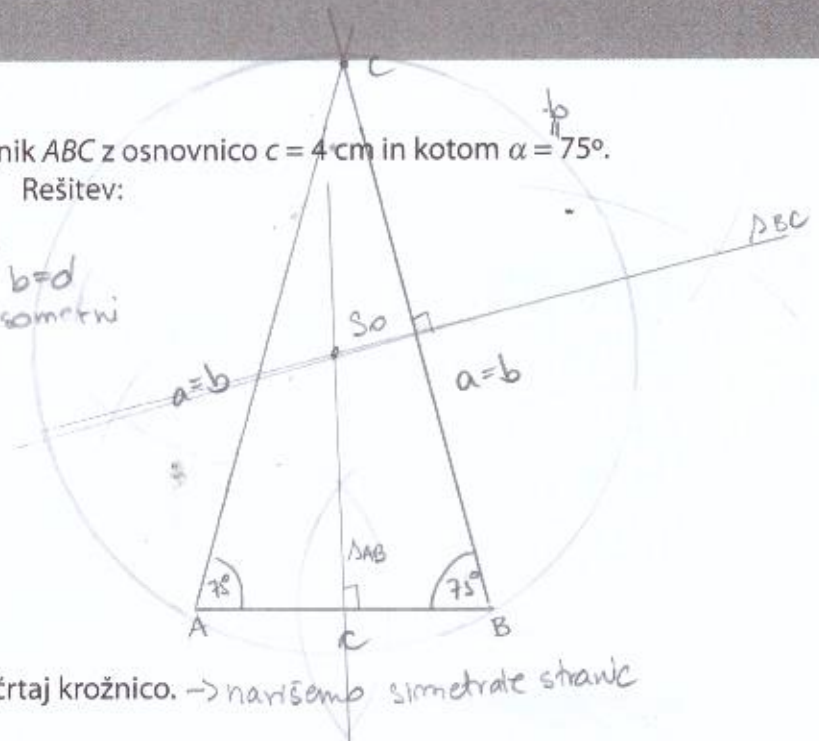 C
nik ABC z osnovnico c = 4 cm in kotom α = 75°.
Rešitev:
sBC
So
a=b
a=b
sAB
75°
75°
A
c
B
črtaj krožnico. -> narišemo simetrale stranic